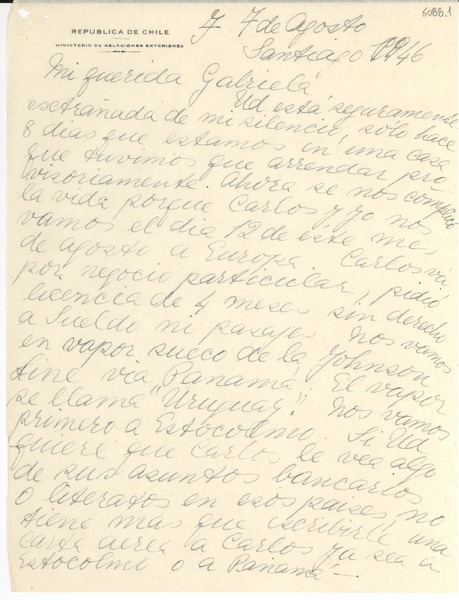 6088.1
REPUBLICA DE CHILE
MINISTERIO DE RELACIONES EXTERIORES
7 de Agosto
Santiago 1946
Mi querida Gabriela
Ud está seguramente
extrañada de mi silencio, solo hace
8 dias que estamos in una casa
que tuvimos que arrendar pro
visoriamente. Ahora se nos complicó
la vida porque Carlos y yo nos
vamos el dia 12 de éste mes
de agosto a Europa. Carlos vá
por negocio particular, pidió
licencia de 4 meses sin derecho
a Sueldo ni pasajes. Nos vamos
en vapor sueco de la Johnson
Line via Panamá. El vapor
se llama "Uruguay". Nos vamos
primero a Estocolmo. Si Ud
quiere que Carlos le vea algo
de sus asuntos bancarios
o literatos en esos paises no
tiene mas que escribirle una
carta aerea a Carlos ya sea a
Estocolmo o a Panamá.—